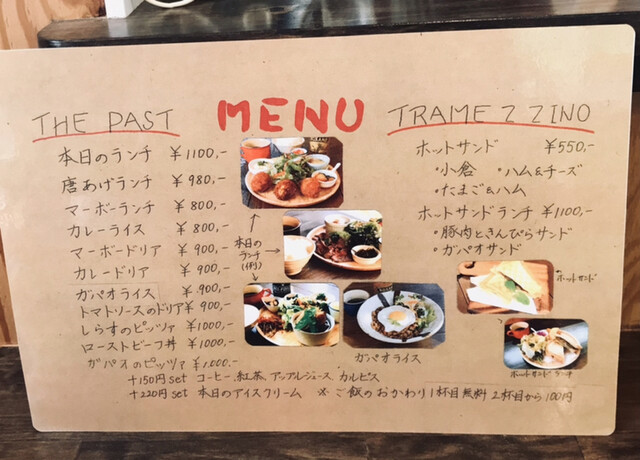 THE PAST
MENU
TRAMEZZINO
本日のランチ ¥1100,-
唐あげランチ ¥980,-
マーボーランチ ¥800,-
カレーライス ¥800,-
マーボードリア ¥900,-
カレードリア ¥900,-
ガパオライス ¥900,-
トマトソースのドリア ¥900,-
しらすのピッツァ ¥1000,-
ローストビーフ丼 ¥1000,-
ガパオのピッツァ ¥1.000,-
+150円set コーヒー、紅茶、アップルジュース、カルピス
+220円set 本日のアイスクリーム ※ご飯のおかわり1杯目無料 2杯目から100円
本日の
ランチ
(1例)
ガパオライス
ホットサンド ¥550,-
・小倉 ・ハム&チーズ
・たまご&ハム
ホットサンドランチ ¥1100,-
・豚肉ときんぴらサンド
・ガパオサンド
ホットサンド
ホットサンドランチ